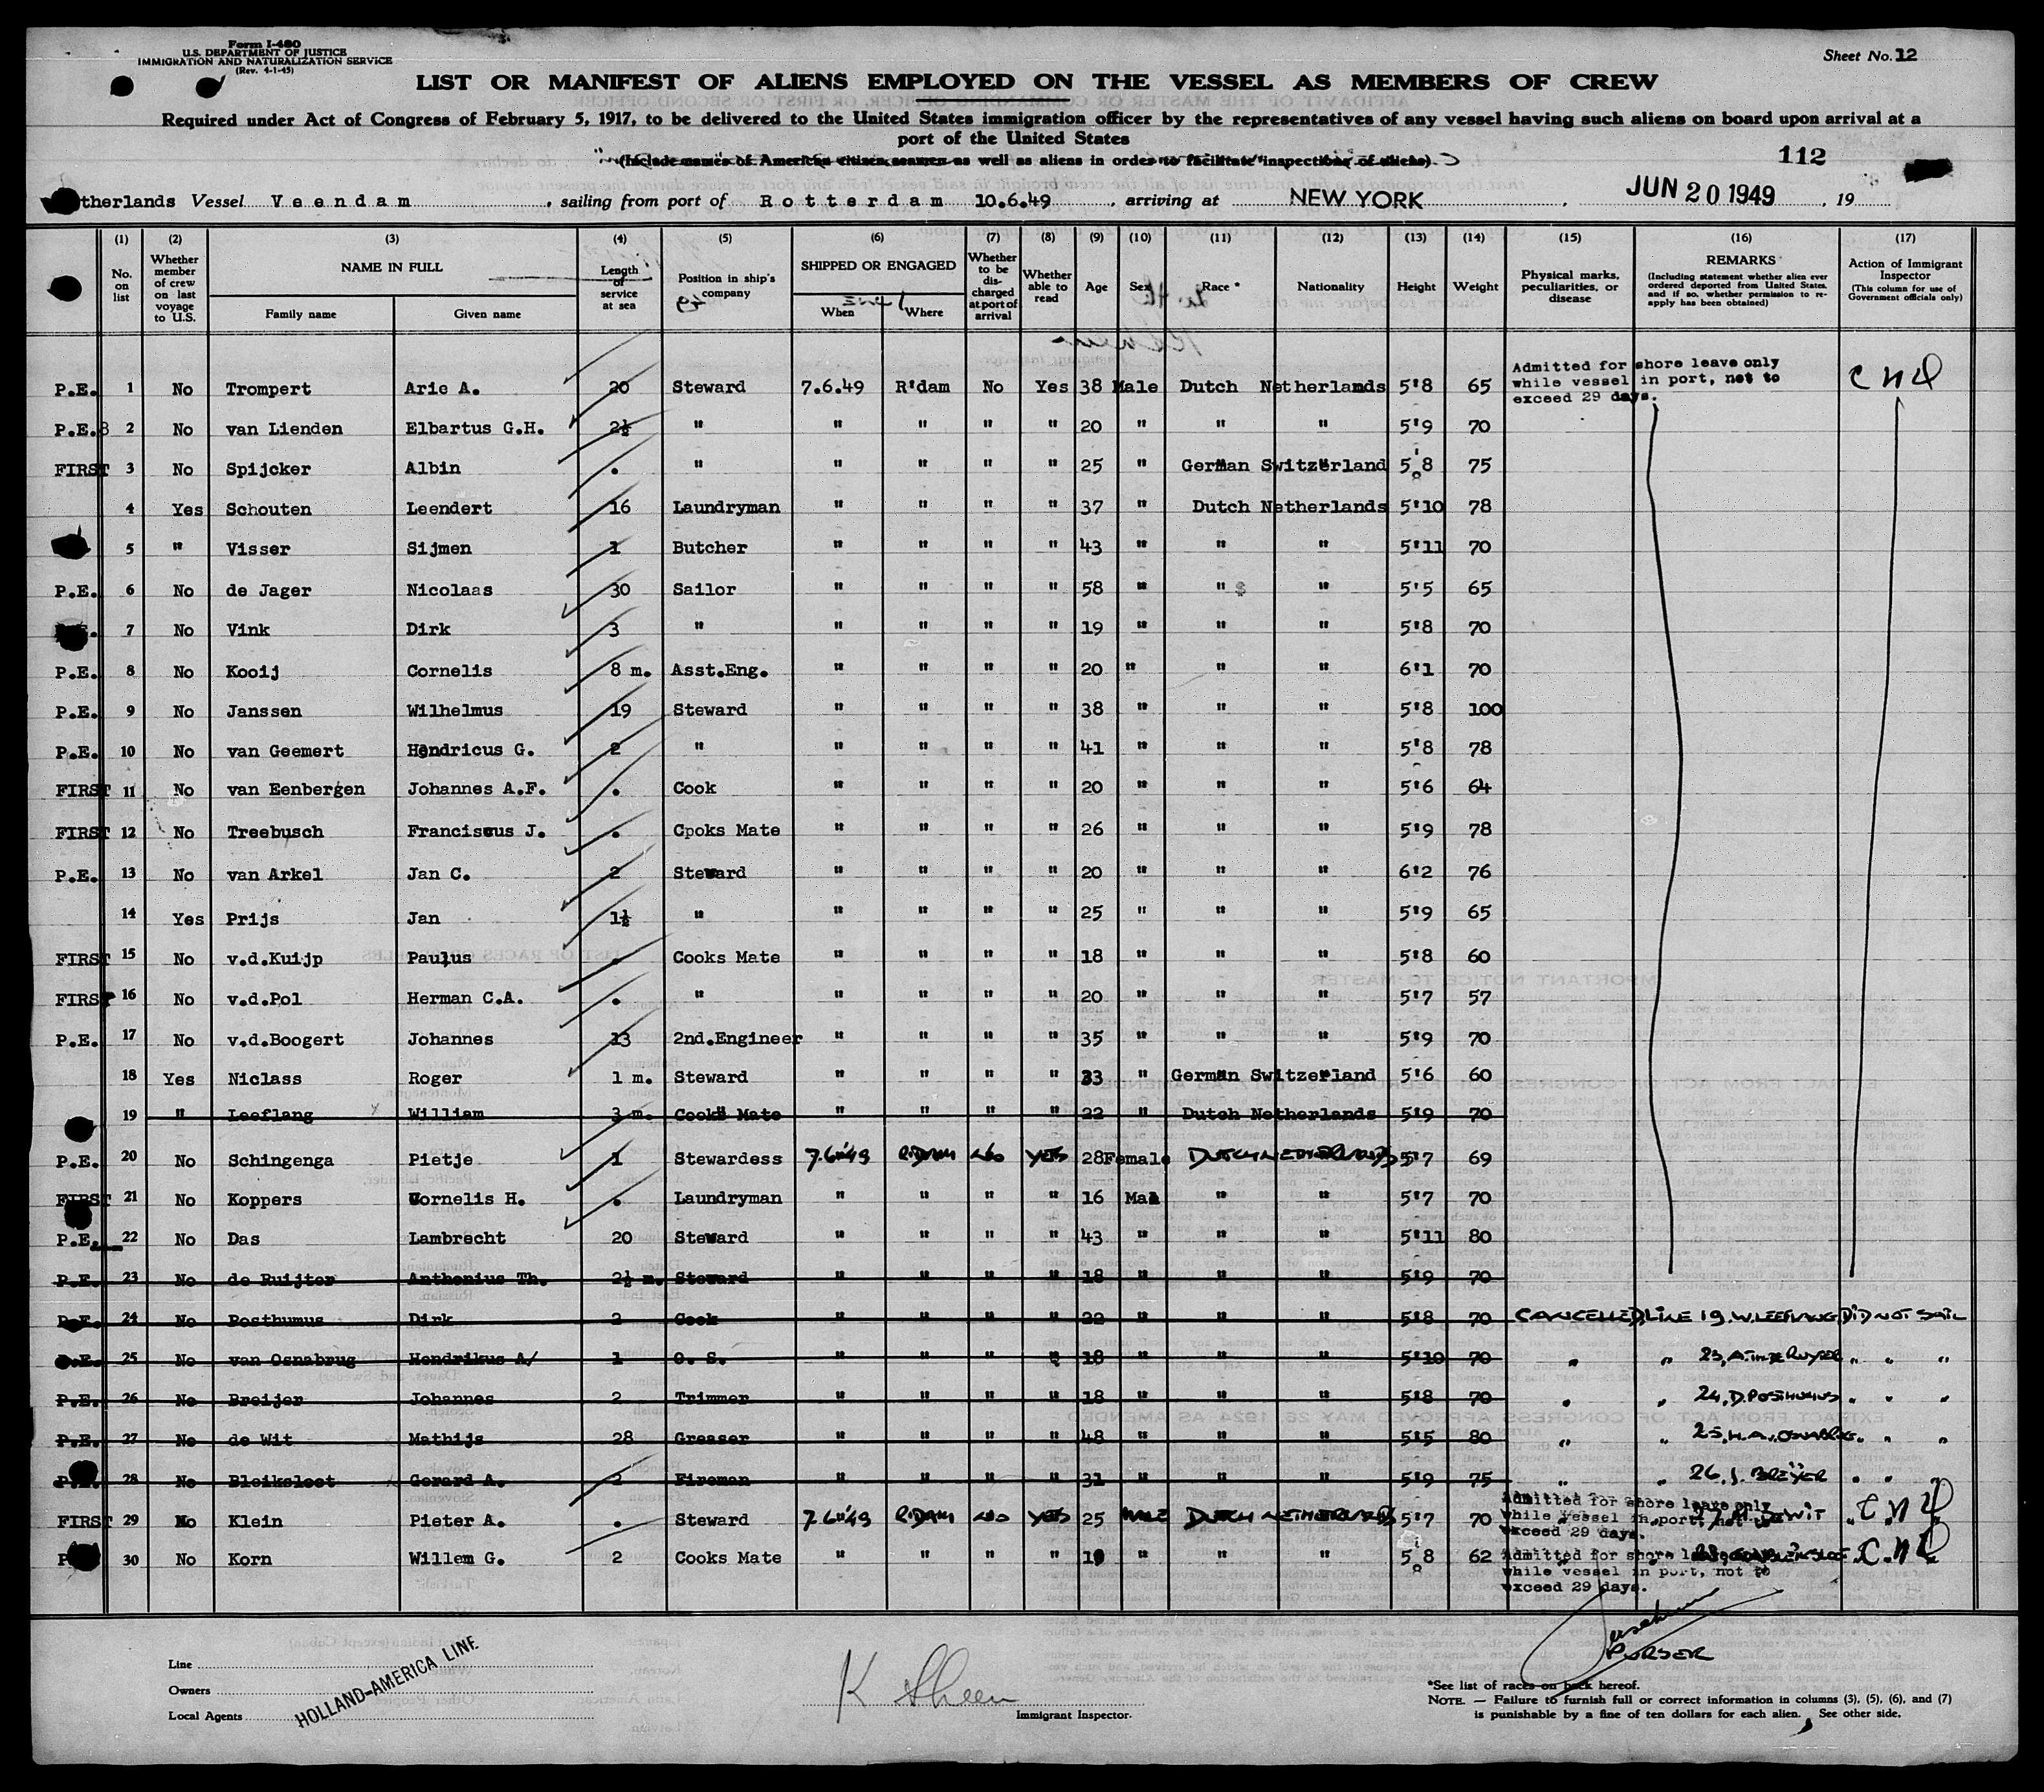 Form I-480
U.S. DEPARTMENT OF JUSTICE
IMMIGRATION AND NATURALIZATION SERVICE
(Rev. 4-1-45)
Sheet No. 12
LIST OR MANIFEST OF ALIENS EMPLOYED ON THE VESSEL AS MEMBERS OF CREW
Required under Act of Congress of February 5, 1917, to be delivered to the United States immigration officer by the representatives of any vessel having such aliens on board upon arrival at a
port of the United States
(Include names of American citizen seamen as well as aliens in order to facilitate inspection of aliens)
112
therlands Vessel Veendam, sailing from port of Rotterdam 10.6.49, arriving at NEW YORK, JUN 20 1949, 19
(1) (2) (3) (4) (5) (6) (7) (8) (9) (10) (11) (12) (13) (14) (15) (16) (17)
No. on list
Whether member of crew on last voyage to U.S.
NAME IN FULL
Family name Given name
Length of service at sea
Position in ship's company
SHIPPED OR ENGAGED
When Where
Whether to be discharged at port of arrival
Whether able to read
Age Sex Race * Nationality Height Weight
Physical marks, peculiarities, or disease
REMARKS
(Including statement whether alien ever ordered deported from United States, and if so, whether permission to reapply has been obtained)
Action of Immigrant Inspector
(This column for use of Government officials only)
P.E. 1 No Trompert Arie A. 20 Steward 7.6.49 R'dam No Yes 38 Male Dutch Netherlands 5'8 65 Admitted for shore leave only while vessel in port, not to exceed 29 days.
P.E. 2 No van Lienden Elbartus G.H. 2½ " " " " " 20 " " " 5'9 70
FIRST 3 No Spijcker Albin . " " " " " 25 " German Switzerland 5'8 75
4 Yes Schouten Leendert 16 Laundryman " " " " 37 " Dutch Netherlands 5'10 78
5 " Visser Sijmen 1 Butcher " " " " 43 " " " 5'11 70
P.E. 6 No de Jager Nicolaas 30 Sailor " " " " 58 " " " 5'5 65
7 No Vink Dirk 3 " " " " " 19 " " " 5'8 70
P.E. 8 No Kooij Cornelis 8 m. Asst.Eng. " " " " 20 " " " 6'1 70
P.E. 9 No Janssen Wilhelmus 19 Steward " " " " 38 " " " 5'8 100
P.E. 10 No van Geemert Hendricus G. 2 " " " " " 41 " " " 5'8 78
FIRST 11 No van Eenbergen Johannes A.F. . Cook " " " " 20 " " " 5'6 64
FIRST 12 No Treebusch Franciscus J. . Cpoks Mate " " " " 26 " " " 5'9 78
P.E. 13 No van Arkel Jan C. 2 Steward " " " " 20 " " " 6'2 76
14 Yes Prijs Jan 1½ " " " " " 25 " " " 5'9 65
FIRST 15 No v.d.Kuijp Paulus . Cooks Mate " " " " 18 " " " 5'8 60
FIRST 16 No v.d.Pol Herman C.A. . " " " " " 20 " " " 5'7 57
P.E. 17 No v.d.Boogert Johannes 13 2nd.Engineer " " " " 35 " " " 5'9 70
18 Yes Niclass Roger 1 m. Steward " " " " 23 " German Switzerland 5'6 60
19 " Leeflang William 3 m. Cooks Mate " " " " 22 " Dutch Netherlands 5'9 70
P.E. 20 No Schingenga Pietje 1 Stewardess 7.6.'49 R.DAM NO YES 28 Female DUTCH NETHERLANDS 5'7 69
FIRST 21 No Koppers Cornelis H. . Laundryman " " " " 16 Mal " " 5'7 70
P.E. 22 No Das Lambrecht 20 Steward " " " " 43 " " " 5'11 80
P.E. 23 No de Ruijter Anthonius Th. 2½ m. Steward " " " " 18 " " " 5'9 70
P.E. 24 No Posthumus Dirk 2 Cook " " " " 22 " " " 5'8 70 CANCELLED, LINE 19 W. LEEFLANG, DID NOT SAIL
P.E. 25 No van Osnabrug Hendrikus A/ 1 O. S. " " " " 18 " " " 5'10 70 " " 23, " " "
P.E. 26 No Breijer Johannes 2 Trimmer " " " " 18 " " " 5'8 70 " " 24, D. POSTHUMUS " " "
P.E. 27 No de Wit Mathijs 28 Greaser " " " " 48 " " " 5'5 80 " " 25, H.A. v. OSNABRUG " " "
P.E. 28 No Bleiksloot Gerard A. 2 Fireman " " " " 31 " " " 5'9 75 " " 26, J. BREYER " " "
FIRST 29 No Klein Pieter A. . Steward 7.6.'49 R.DAM NO YES 25 MALE DUTCH NETHERLANDS 5'7 70 Admitted for shore leave only while vessel in port, not to exceed 29 days.
30 No Korn Willem G. 2 Cooks Mate " " " " 19 " " " 5'8 62 Admitted for shore leave only while vessel in port, not to exceed 29 days.
PURSER
Line
Owners
Local Agents
HOLLAND-AMERICA LINE
K Sheen
Immigrant Inspector.
*See list of races on back hereof.
NOTE. — Failure to furnish full or correct information in columns (3), (5), (6), and (7)
is punishable by a fine of ten dollars for each alien. See other side.